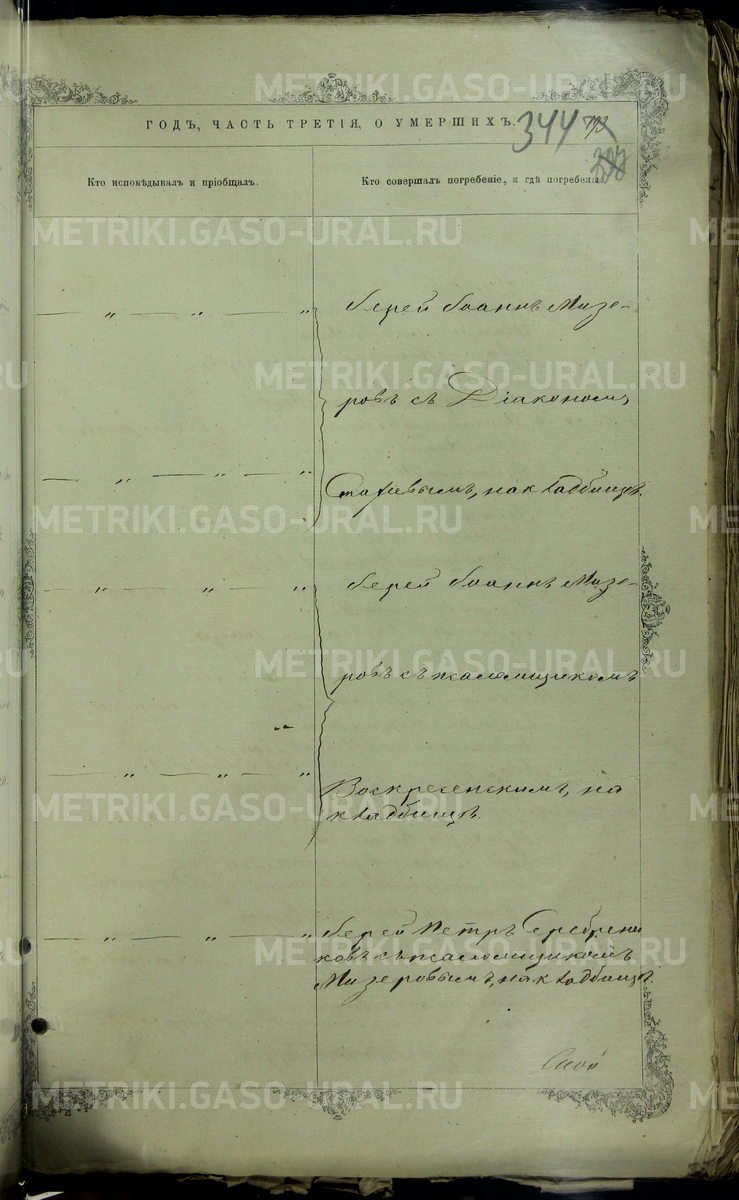 ГОДЪ, ЧАСТЬ ТРЕТІЯ, О УМЕРШИХЪ.
344
Кто исповѣдывалъ и пріобщалъ.
Кто совершалъ погребеніе, и гдѣ погребены
— „ — „ — „
Іерей Іоаннъ Мизе-
ровъ съ Діакономъ
— „ — „ — „
Стафіевымъ, на кладбищѣ.
— „ — „ — „
Іерей Іоаннъ Мизе-
ровъ съ псаломщикомъ
— „ — „ — „
Воскресенскимъ, на
кладбищѣ.
— „ — „ — „
Іерей Петръ Серебрени
ковъ съ псаломщикомъ
Мизеровымъ, на кладбищѣ.
METRIKI.GASO-URAL.RU